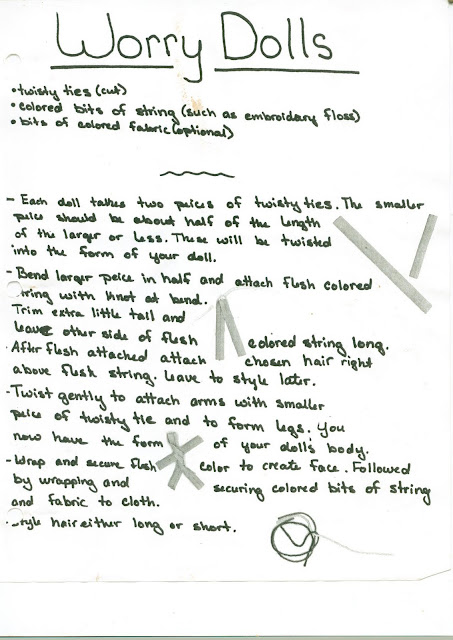 Worry Dolls
• twisty ties (cut)
• colored bits of string (such as embroidary floss)
• bits of colored fabric (optional)
- Each doll talkes two peices of twisty ties. The smaller
peice should be about half of the length
of the larger or less. These will be twisted
into the form of your doll.
- Bend larger peice in half and attach flesh colored
string with knot at bend.
Trim extra little tail and
leave other side of flesh colored string long.
- After flesh attached attach chosen hair right
above flesh string. Leave to style later.
- Twist gently to attach arms with smaller
peice of twisty tie and to form legs. You
now have the form of your doll's body.
- Wrap and secure flesh color to create face. Followed
by wrapping and securing colored bits of string
and fabric to cloth.
- Style hair either long or short.